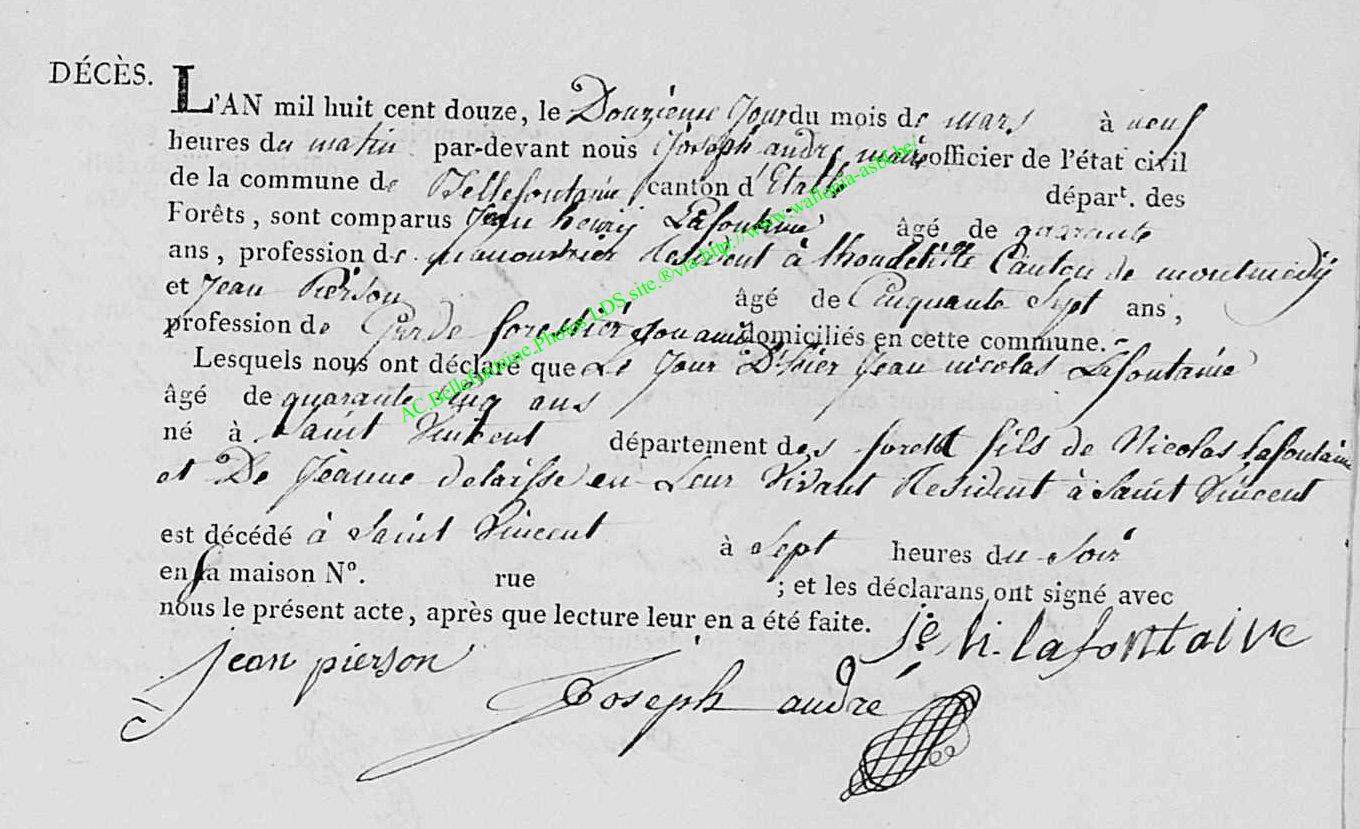 DÉCÈS.
L'AN mil huit cent douze, le Douzieme Jour du mois de mars à neuf
heures du matin par-devant nous Joseph andre maire officier de l'état civil
de la commune de Bellefontaine canton d'Etalle départ. des
Forêts, sont comparus Jean henry Lafontaine âgé de quarante
ans, profession de manouvrier Resident à thonnelle Canton de montmedy
et Jean Pierson âgé de Cinquante Sept ans,
profession de Garde forestier domiciliés en cette commune.
Lesquels nous ont déclaré que Le Jour D'hier Jean nicolas Lafontaine
âgé de quarante cinq ans
né à Saint Vincent département des foret fils de Nicolas Lafontaine
et De Jeanne delaisse en Leur Vivant Resident à Saint Vincent
est décédé à Saint Vincent à Sept heures du Soir
en sa maison Nº. rue ; et les déclarans ont signé avec
nous le présent acte, après que lecture leur en a été faite.
je h. lafontaine
jean pierson
Joseph andré
AC.Bellefontaine.Photos.LDS.site.®via.http://www.wallonia-asbl.be/